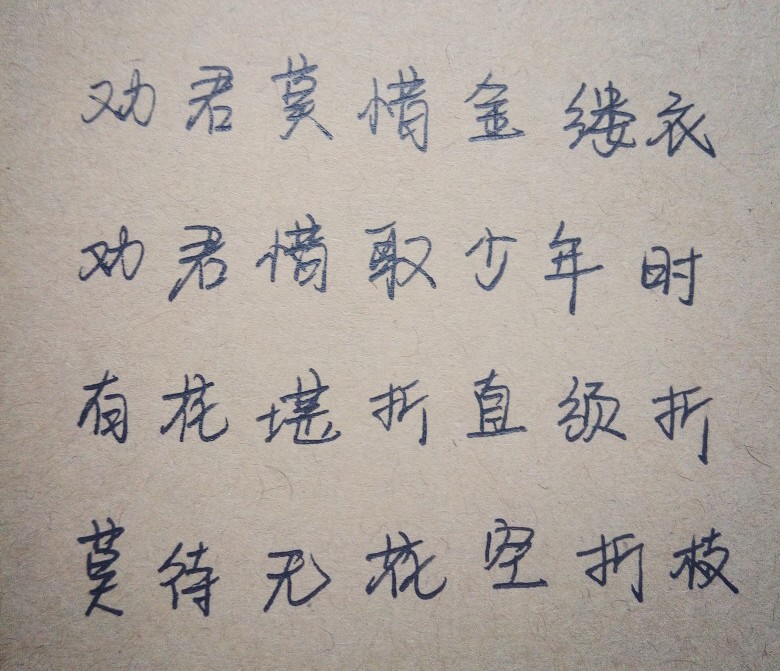 劝君莫惜金缕衣
劝君惜取少年时
有花堪折直须折
莫待无花空折枝